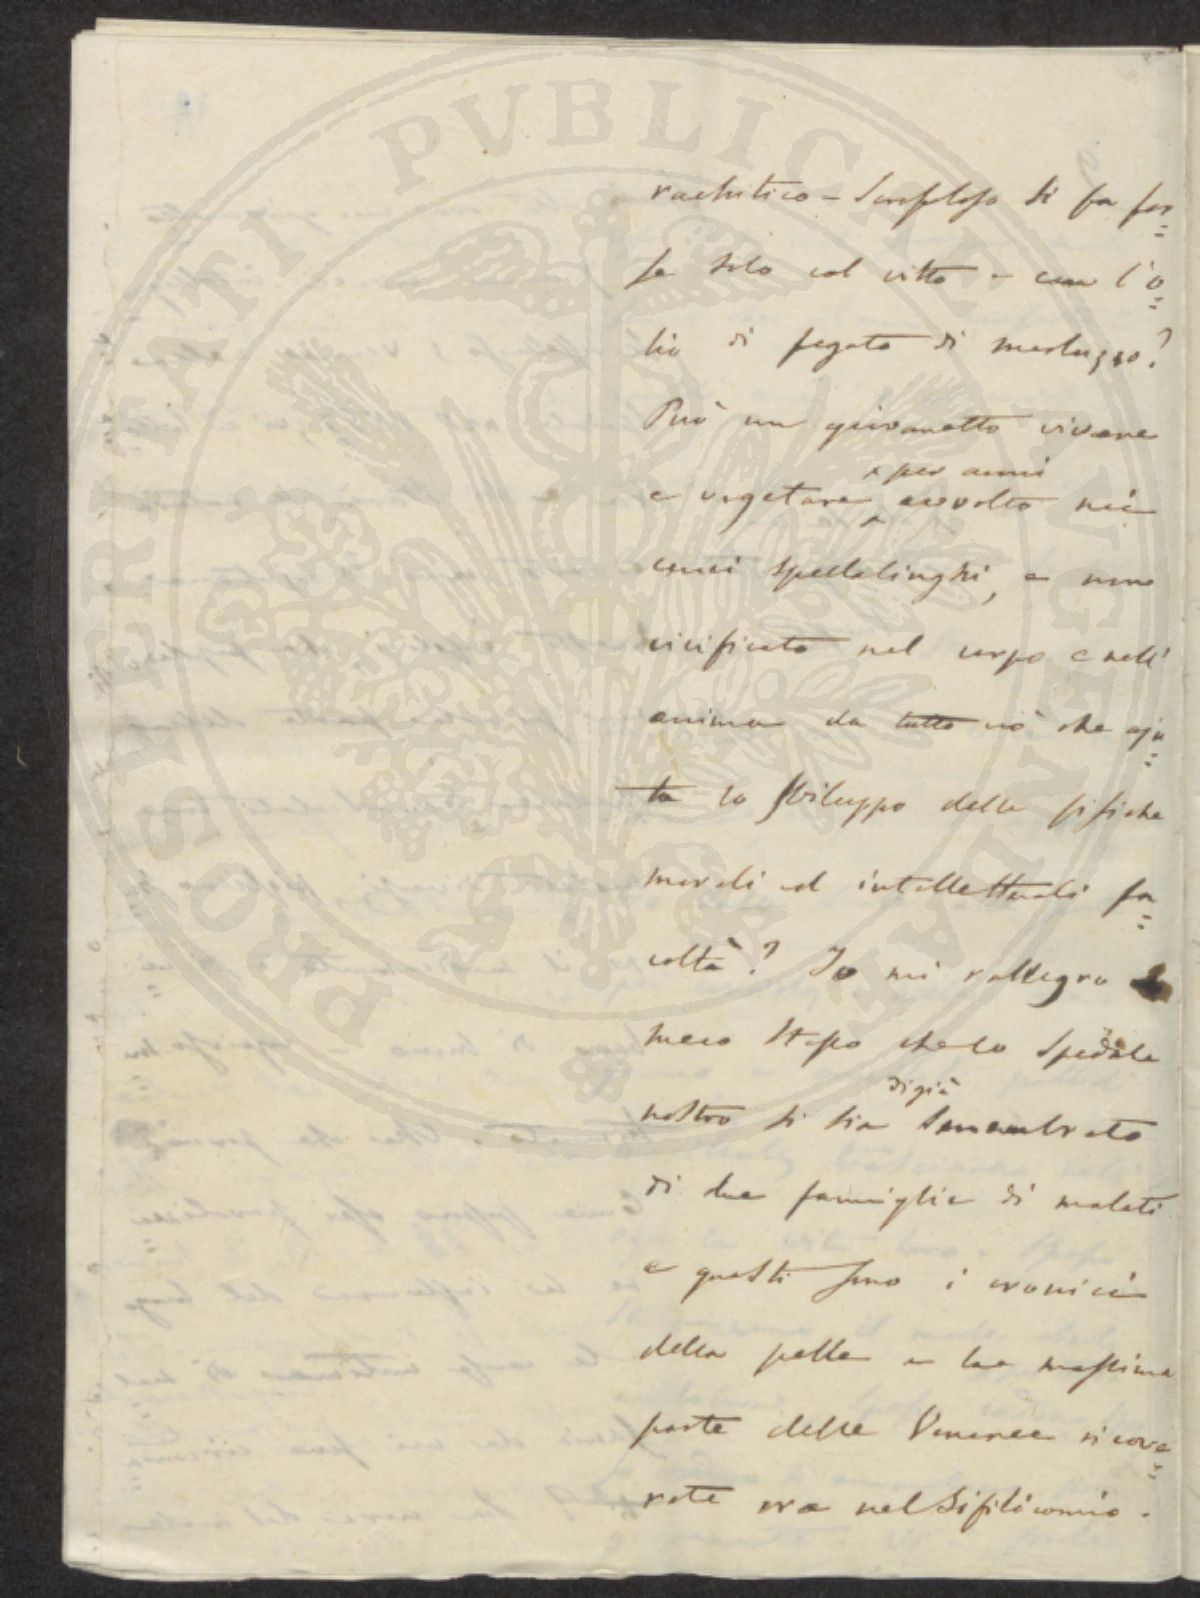 PROSPERITATI PVBLICAE AVGENDAE
rachitico - Scrofoloso si fa for=
se solo col vitto e con l'o=
lio di fegato di merluzzo?
Può un giovanetto vivere
× per anni
e vegetare avvolto nei
cenci spedalinghi, e non
vivificato nel corpo e nell'
anima da tutto ciò che aju=
ta lo sviluppo delle fisiche
morali ed intellettuali fa=
coltà? Io mi rallegro
meco stesso che lo Spedale
digià
nostro si sia smembrato
di due famiglie di malati
e questi sono i cronici
della pelle e la massima
parte delle Veneree ricove=
rate ora nel Sifilicomio.